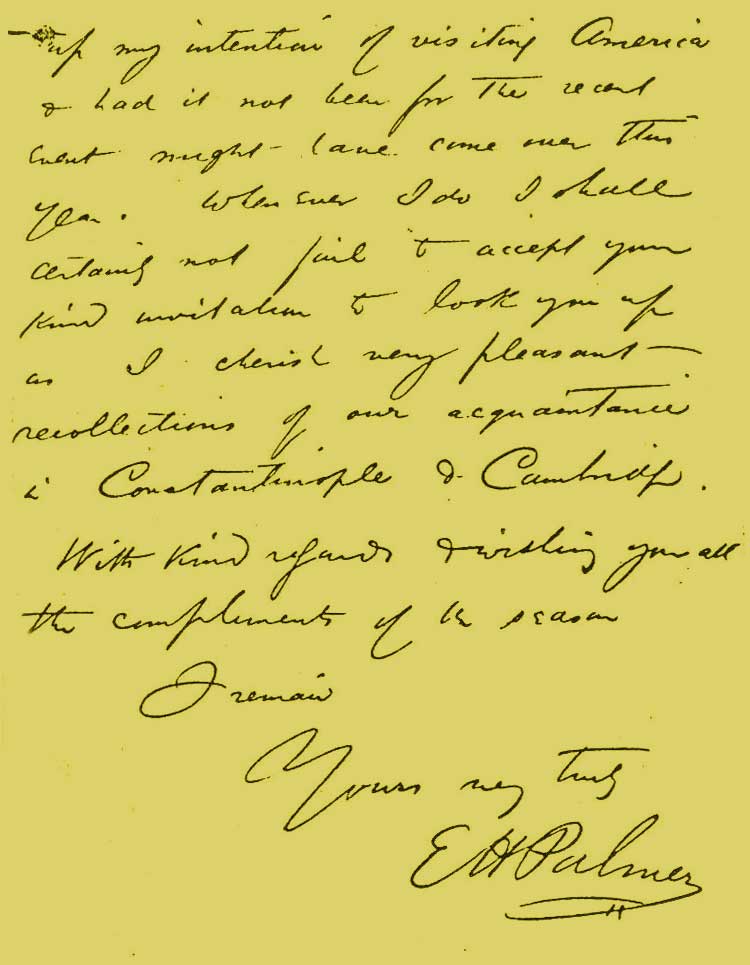 up my intention of visiting America
& had it not been for the recent
event might have come over this
year. Whenever I do I shall
certainly not fail to accept your
kind invitation to look you up
as I cherish very pleasant
recollections of our acquaintance
in Constantinople & Cambridge.
With kind regards & wishing you all
the compliments of the season
I remain
Yours very truly
EHPalmer